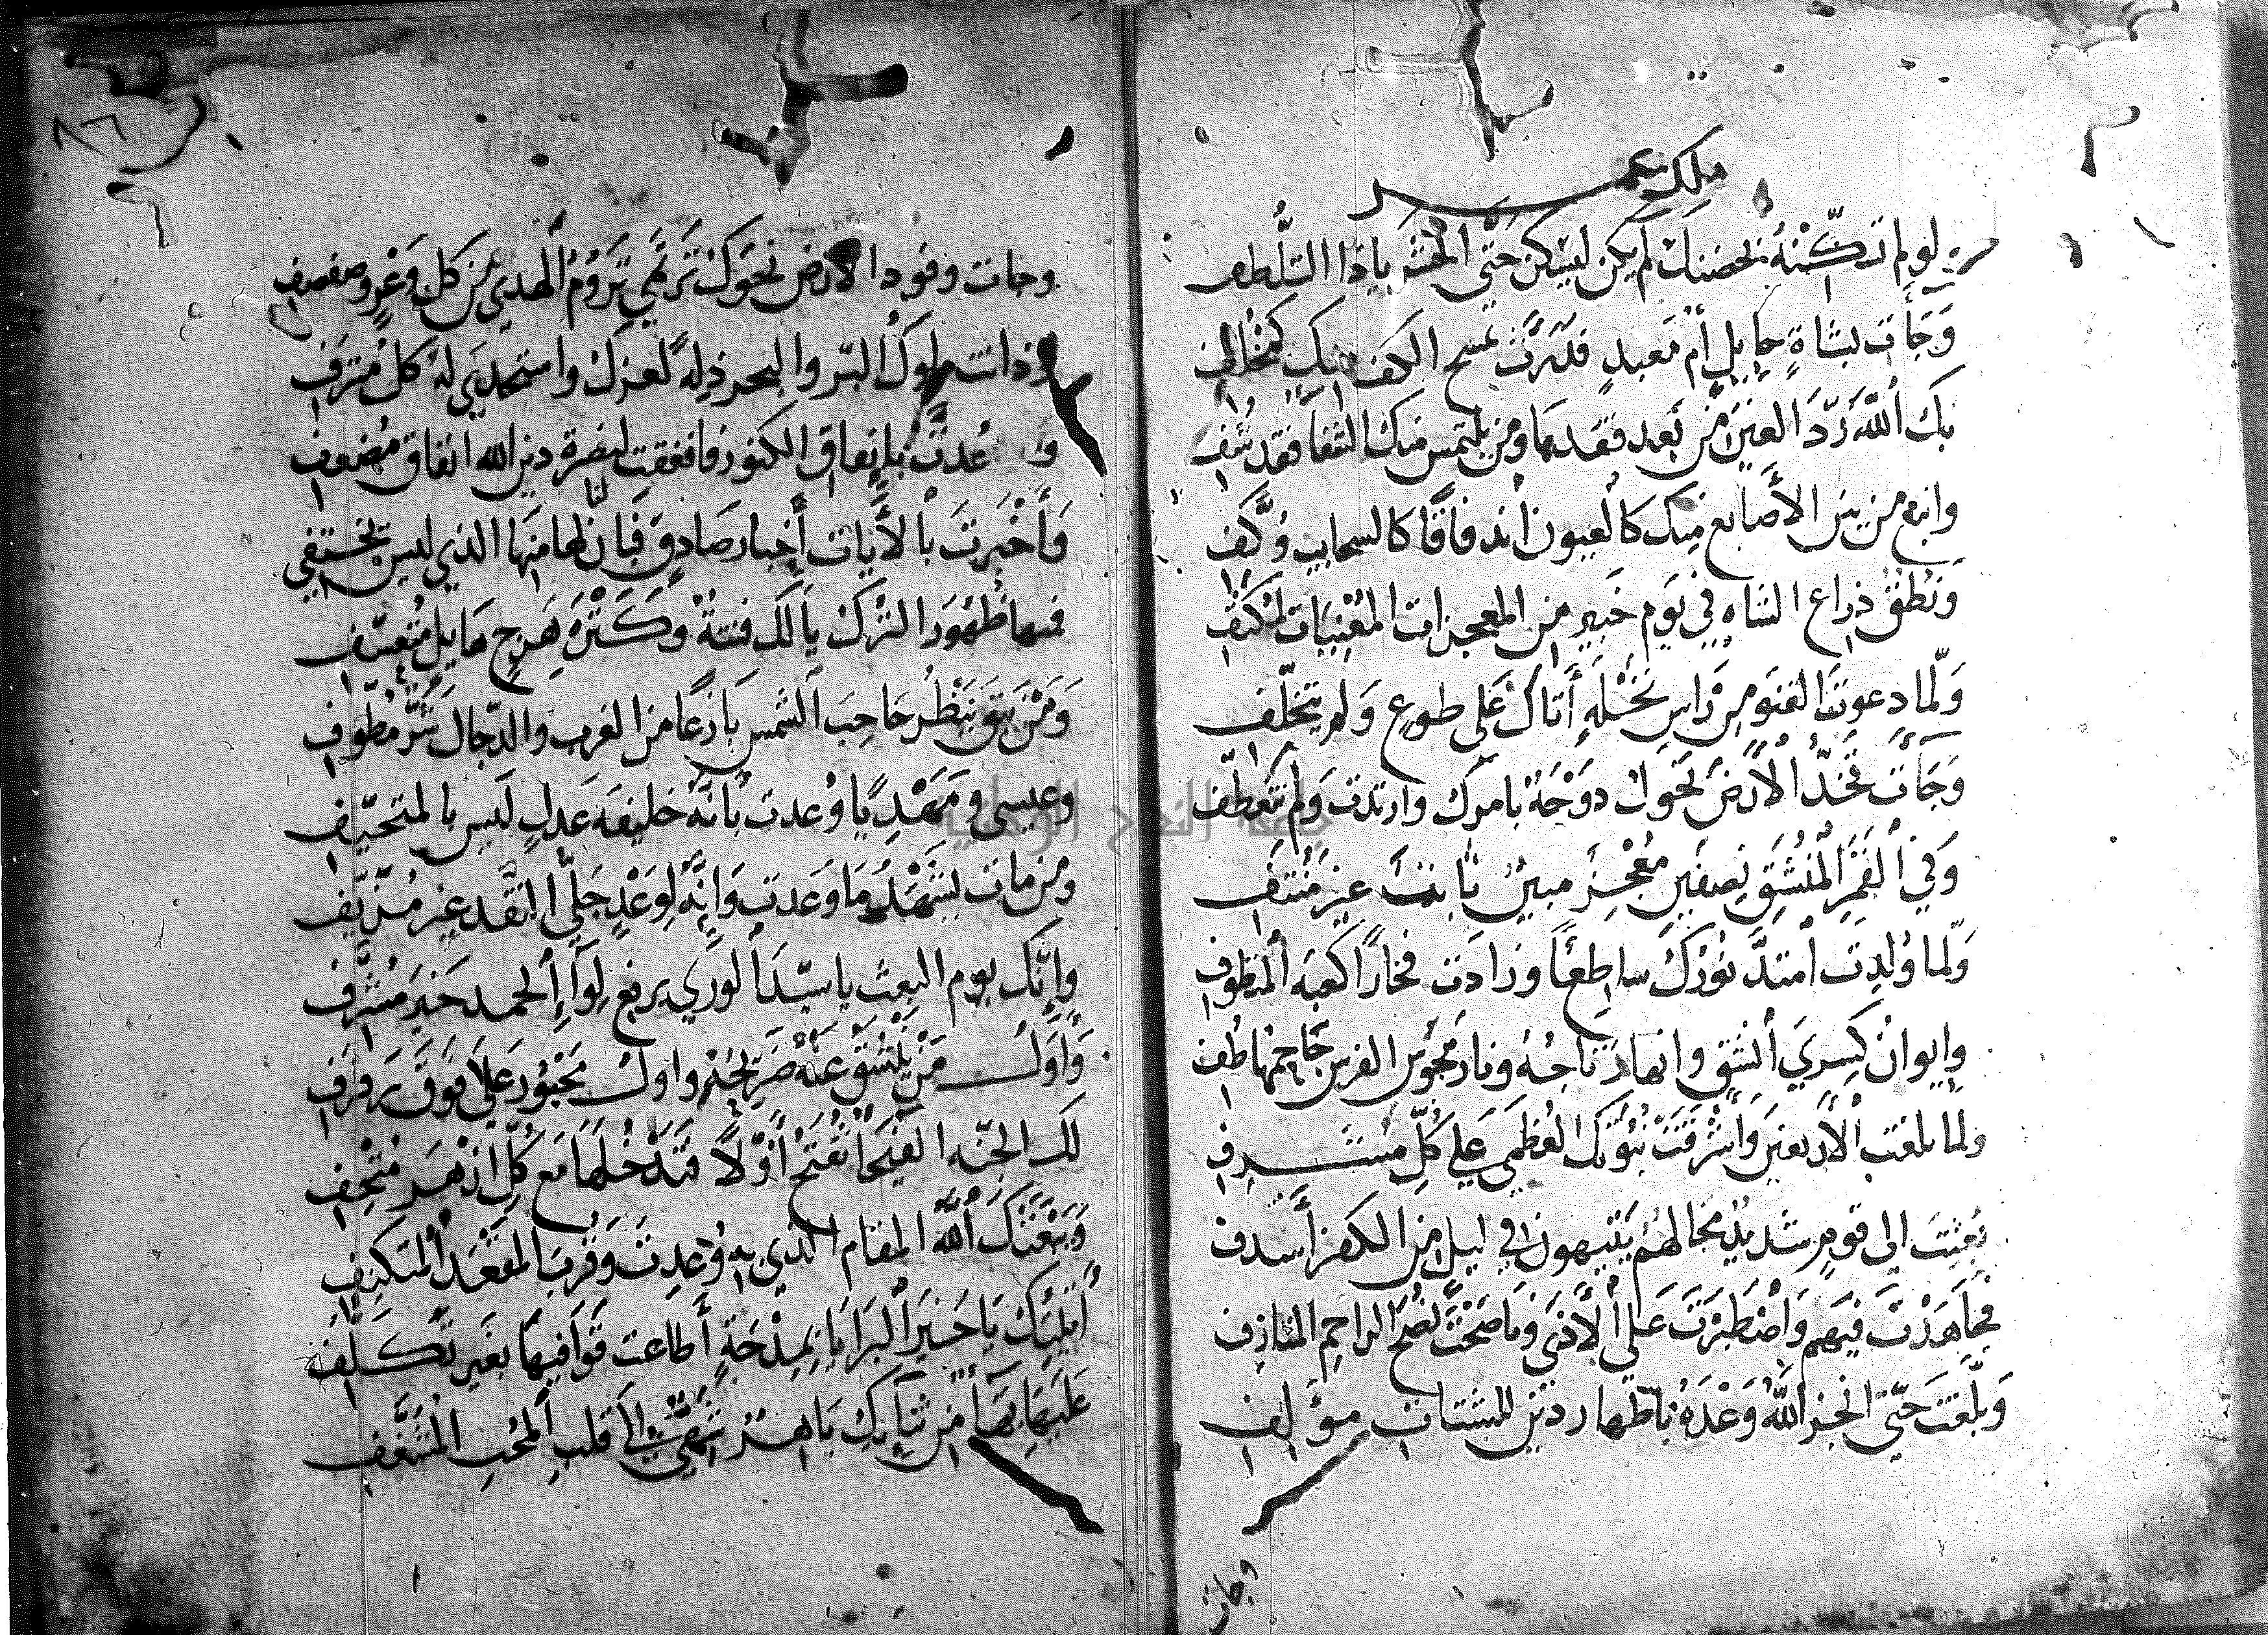 ولو لم تسكنه بحضنك لم يكن ليسكن حتى الحشر ياذا التلطف
وَجَأت بشاةٍ حايلٍ أم مَعبدٍ فدَرّت بمسح الكف منك
بك اللهُ رَدَّ العين من بَعد فقدها ومن يلتمس منك الشفا فقد شُفِ
وانبع من بين الأصابع منك كالعيون اندفاقًا كالسحايب وُكَّف
وَنُطقُ ذراع الشاه في يَوم خَيبرٍ من المعجزات المُغنيات لمكتف
وَلمّا دعوتَ القنو من رَاسِ نَخْلَةٍ أتاك عَلى طوع وَلم يتخلّف
وَجَأَت تَخُدُّ الأرضَ نحوك دَوْحَة بامرك وارتدت وَلم تتعَطّف
وَفي القَمَرِ المُنشَقِّ نصفين مُعْجِزٌ مبينٌ ثابتٌ غير مُنتَف
وَلمّا وُلِدتَ امتدَّ نورك ساطِعًا وزادت فخارًا كعبة المتطوف
وإيوانُ كِسرَي انشَقَّ وانهار تاجُهُ ونار مَجُوس الفرس جَاحِمها طُف
ولما بلغت الأربعين وَأشرَقَتْ نبُوتك العُظمى عَلي كُلِّ مشرف
بُعِثتَ الى قومٍ شديدٍ مِحَالهُم يَتيهون في ليل من الكفر أسدف
فجَاهَدْتَ فيهم وَاصْطَبَرْتَ عَلى الأذى وناصَحْتَ نُصْحَ الراحم المتاذف
وَبلّغتَ حَتّى انجز اللهُ وَعْدَهُ باظهار دين للشتات مؤلف
وجات
وجات وفود الارض نحوَك ترتمي تَرُومُ الهدى من كل وَعْرٍ وصفصف
وذانت ملوكُ البرّ والبحر ذِلةً لعزك واستحدي له كل مُترَف
وَعُدتَ بإنفاق الكنوز فانفقت لنصرة دين الله انفاق مُضعِف
وَأَخْبَرتَ بالآيات أخبار صَادِقٍ فبان لنا منها الذي ليس يختفي
فمنها ظُهُور الترك يالك فتنةً وَكَثرَة هَرجٍ هايلٍ مُتعسّف
وَمَنْ يَبقَ يَنظُر حَاجِبَ الشمس بازغًا من الغرب والدّجال شَرَّ مُطوِّف
وعيسى ومَهْدِيًا وُعدت بأنهُ خليفة عَدلٍ لَيس بالمتحيّف
ومن مات يشهَدْ مَا وَعَدتَ وَإنّهُ لوَعْدٌ جَليُّ النقد غير مُزيَّف
وإنَّك يوم البعث ياسيّدَ الوَرَى يرفع لواء الحمد خير مُشرَّف
وَأوّل مَنْ يَنشقُّ عَنْهُ ضريحُهُم واول مَحْبُورٍ عَلَا فوق رَفرَف
لك الجنّه الفيحا تُفتَحُ أوّلاً فتَدْخُلها مع كُلّ ازهر مُتْحِف
وَيَبْعَثكَ اللهُ المقام الذي به وُعِدتَ وَقُربَ المقعَد المتكنِف
أَتيتُك يا خَيرَ البَرايَا بمدْحَةٍ أطاعت قوَافيها بغير تكلّف
عَليهَا بَهَاءٌ من ثنايك بَاهرٌ شَهِيٌّ الى قلب المُحِب المُشَغَّف